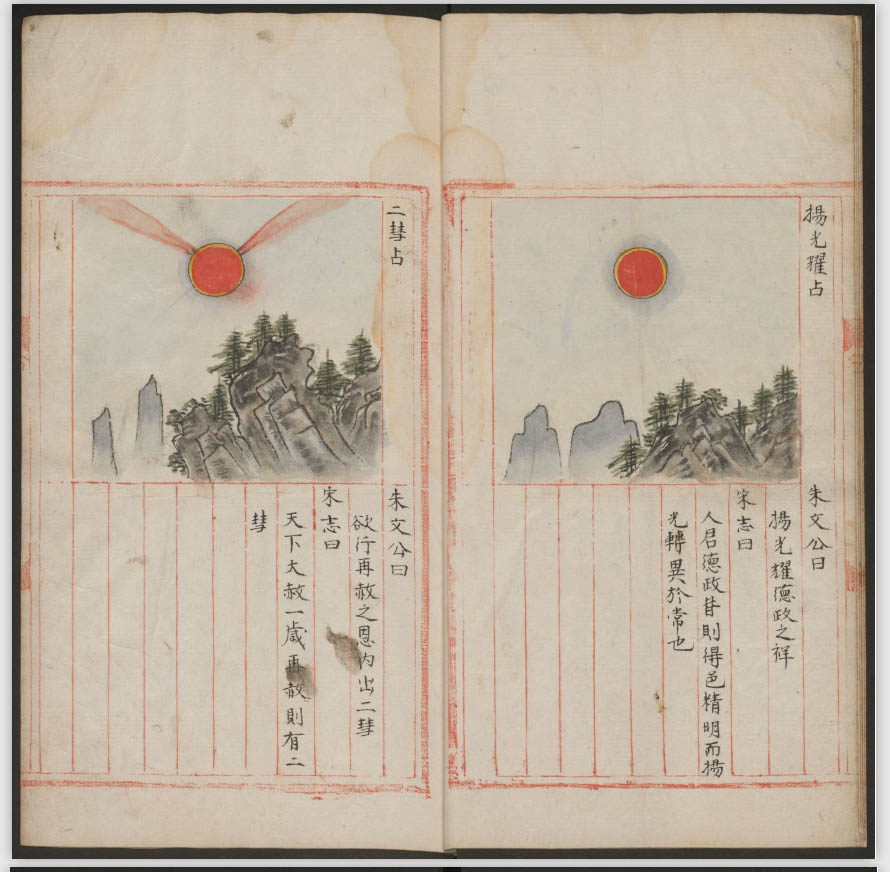 揚光耀占
朱文公曰
揚光耀德政之祥
宋志曰
人君德政昔則得色精明而揚
光轉異於常也
二彗占
朱文公曰
欲行再赦之恩内出二彗
宋志曰
天下大赦一歲再赦則有二
彗